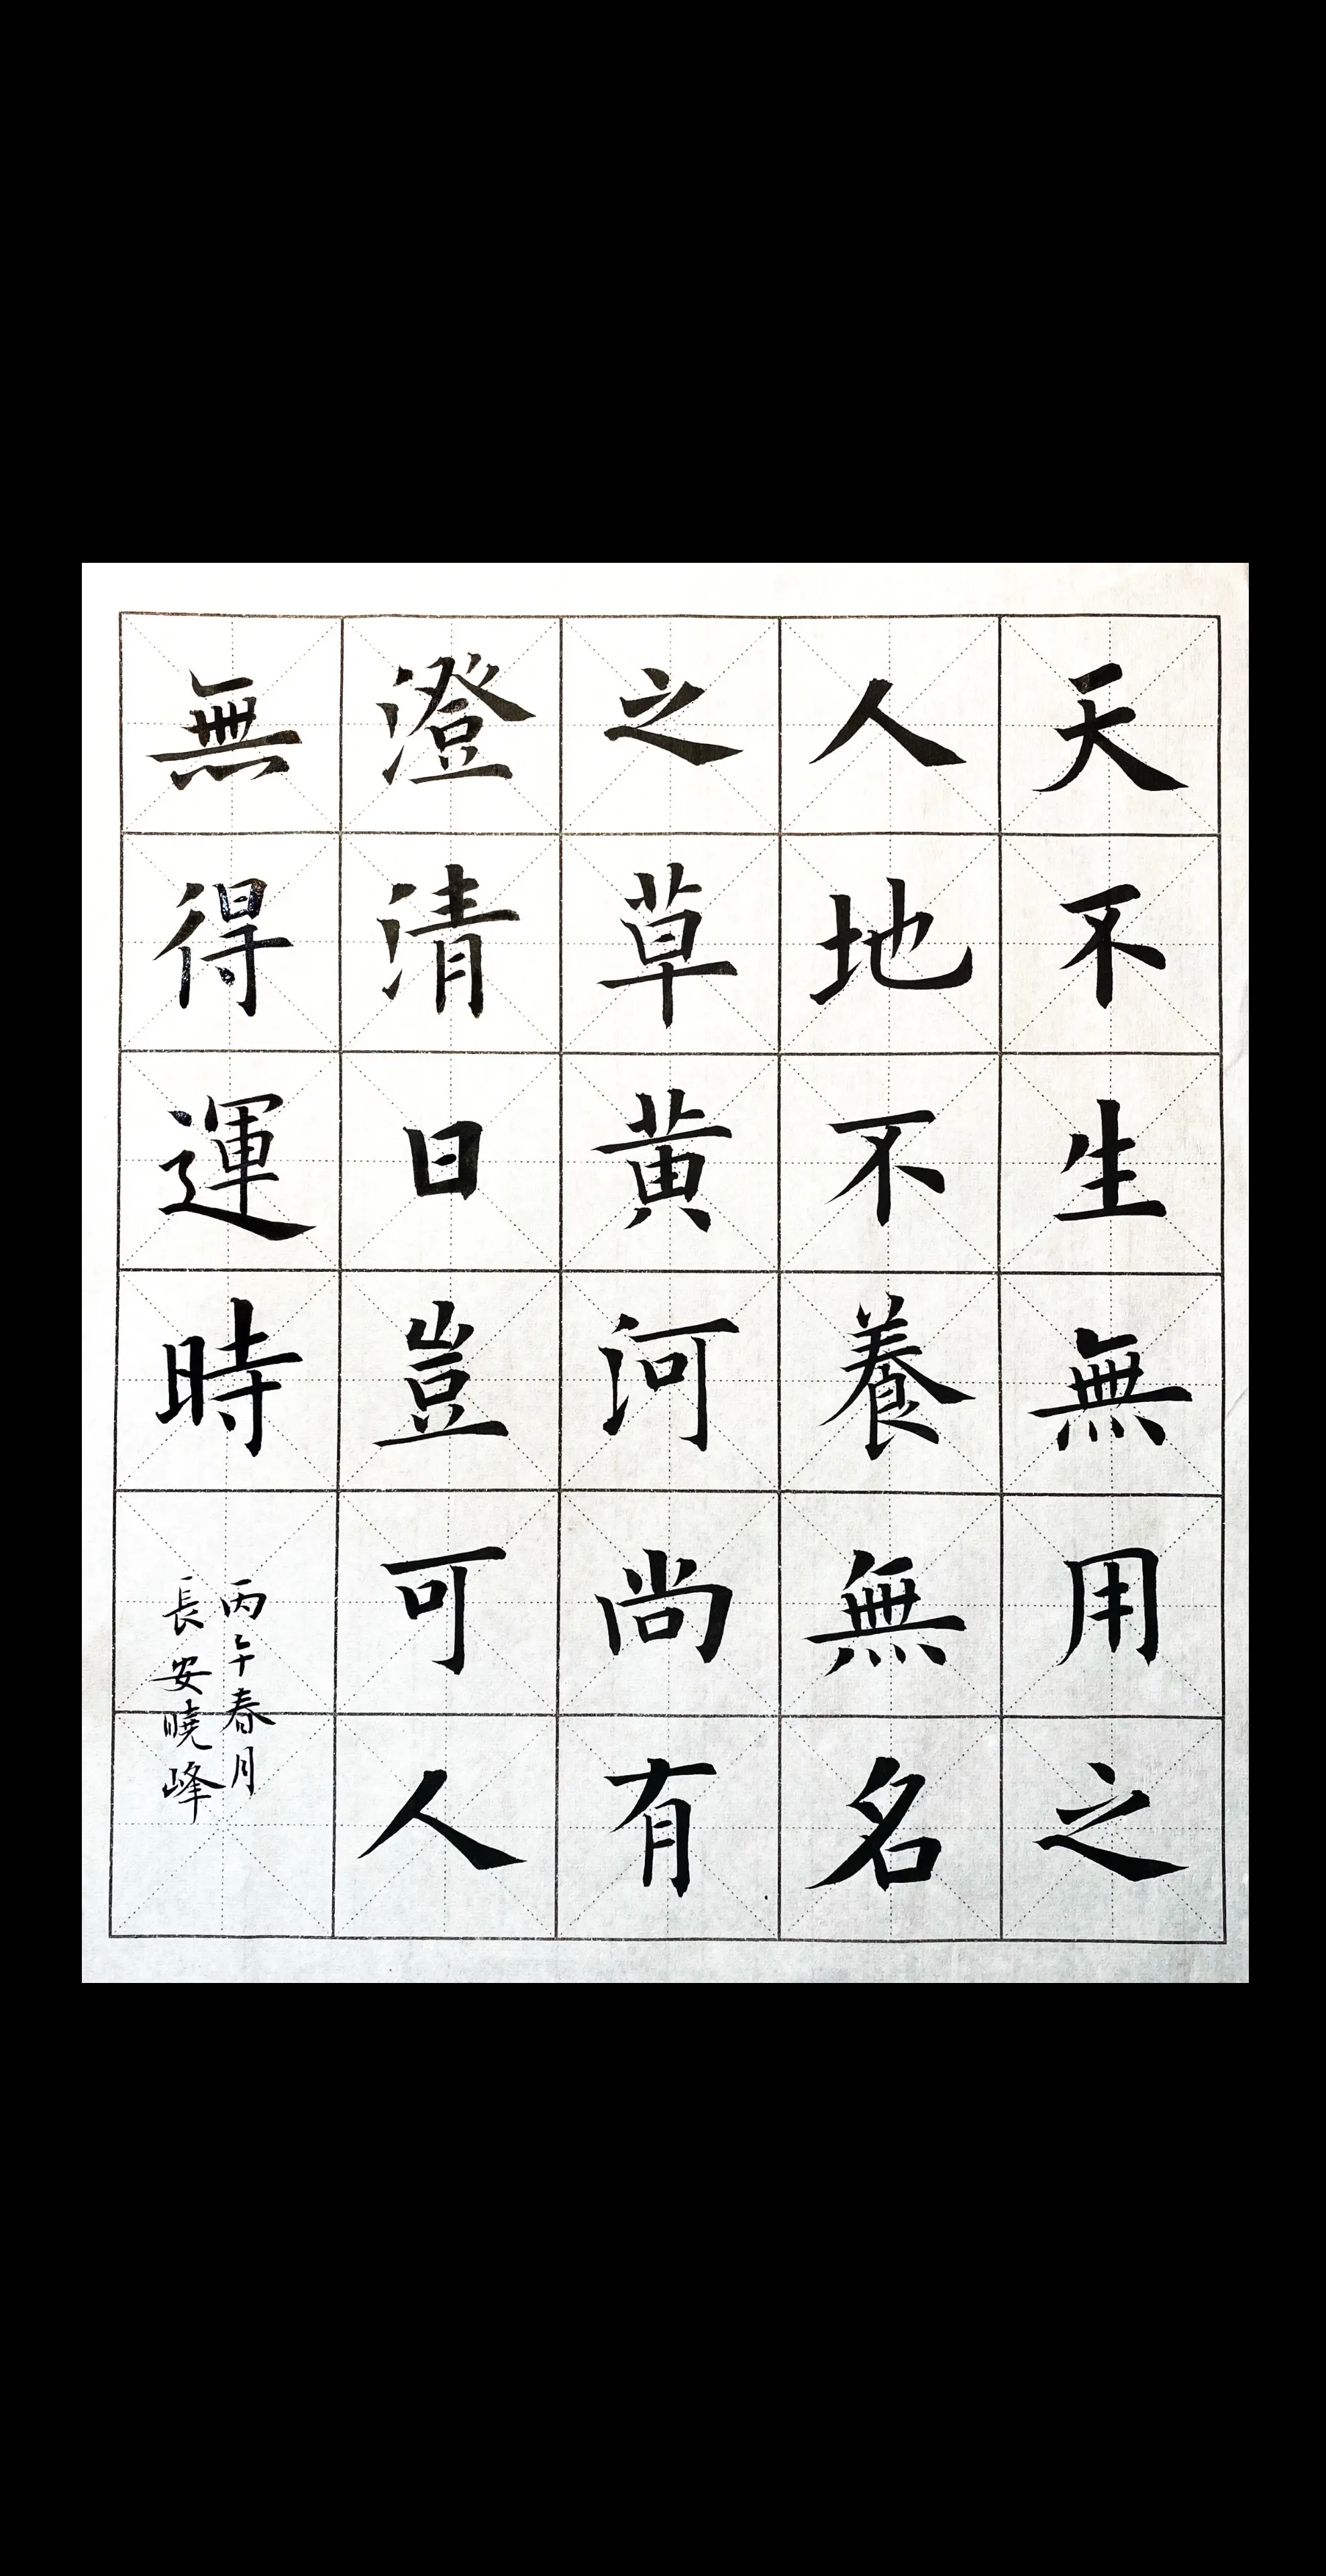 天不生無用之
人地不養無名
之草黄河尚有
澄清日豈可人
無得運時
丙午春月
長安曉峰